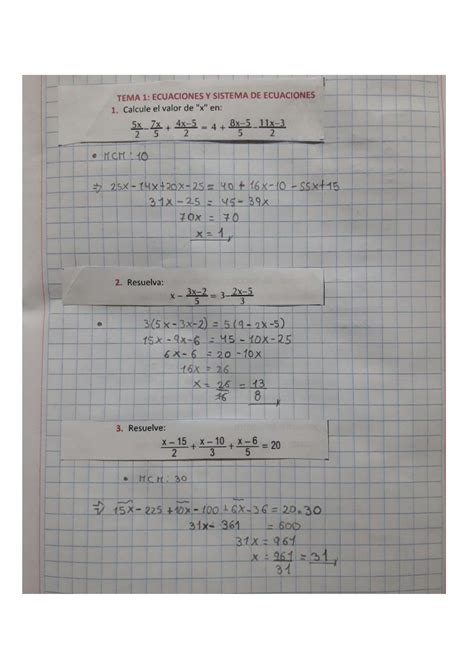 TEMA 1: ECUACIONES Y SISTEMA DE ECUACIONES
1. Calcule el valor de "x" en:
5x/2 - 7x/5 + 4x-5/2 = 4 + 8x-5/5 - 11x-3/2
• MCM: 10
⇒ 25x-14x+20x-25 = 40 + 16x-10-55x+15
31x-25 = 45-39x
70x = 70
x = 1
2. Resuelva:
x - 3x-2/5 = 3- 2x-5/3
• 3(5x-3x-2) = 5(9-2x-5)
15x-9x-6 = 45-10x-25
6x-6 = 20-10x
16x = 26
x = 26/16 = 13/8
3. Resuelve:
x-15/2 + x-10/3 + x-6/5 = 20
• MCM: 30
⇒ 15x-225+10x-100+6x-36 = 20.30
31x-361 = 600
31x = 961
x = 961/31 = 31